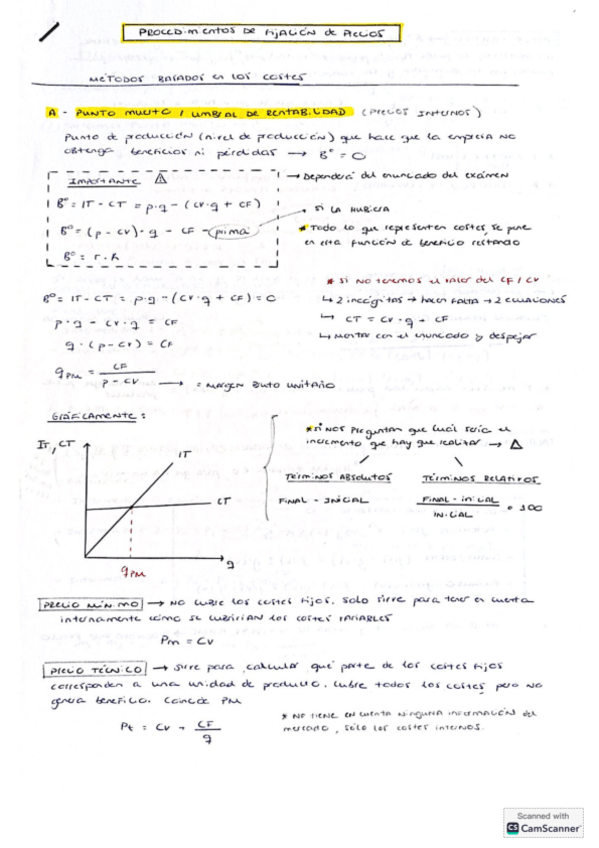 PROCEDIMIENTOS DE FIJACIÓN DE PRECIOS
MÉTODOS BASADOS EN LOS COSTES
A - PUNTO MUERTO / UMBRAL DE RENTABILIDAD (PRECIOS INTERNOS)
Punto de producción (nivel de producción) que hace que la empresa no
obtenga beneficios ni pérdidas → Bº = 0
IMPORTANTE ⚠ → Dependerá del enunciado del exámen
Bº = IT - CT = p·q - (CV·q + CF)
Bº = (p - CV)·q - CF - prima → SI LA HUBIERA
Bº = r · k
* Todo lo que represente costes, se pone
en esta función de beneficio restando
Bº = IT - CT = p·q - (CV·q + CF) = 0
p·q - CV·q = CF
q·(p - CV) = CF
q PM = CF / p - CV → = MARGEN BRUTO UNITARIO
* SI NO TENEMOS el valor del CF / CV
↳ 2 incógnitas → hacen FALTA → 2 ECUACIONES
↳ CT = CV·q + CF
↳ Montar con el enunciado y despejar
GRÁFICAMENTE:
IT, CT
IT
CT
q PM
q
* SI NOS preguntan que cuál sería el
incremento que hay que realizar → Δ
TÉRMINOS ABSOLUTOS
FINAL - INICIAL
TÉRMINOS RELATIVOS
FINAL - INICIAL / INICIAL • 100
PRECIO MÍNIMO → NO cubre los costes fijos. Solo sirve para tener en cuenta
internamente cómo se cubrirían los costes VARIABLES
Pm = CV
PRECIO TÉCNICO → sirve para calcular qué parte de los costes fijos
corresponden a una unidad de producto. Cubre todos los costes pero no
genera beneficio. Coincide PM
Pt = CV + CF / q
* NO TIENE EN CUENTA NINGUNA INFORMACIÓN del
mercado, SÓLO los costes internos.
Scanned with
CS CamScanner